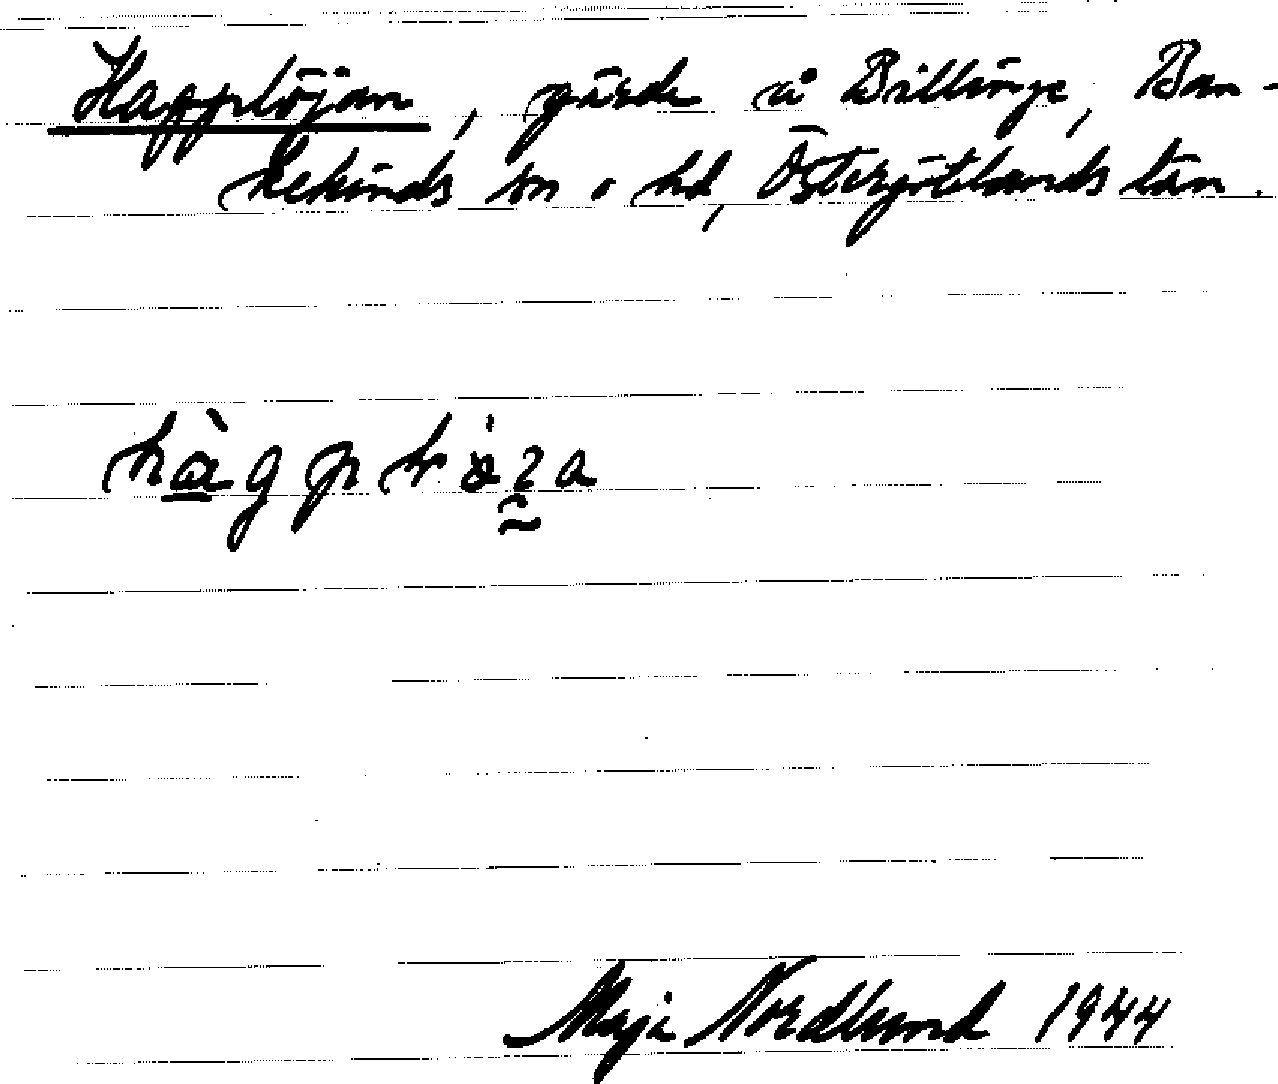 Hagplöjan, gärde å Billinge, Ban-
kekinds sn o hd, Östergötlands län.
Maja Nordlund 1944